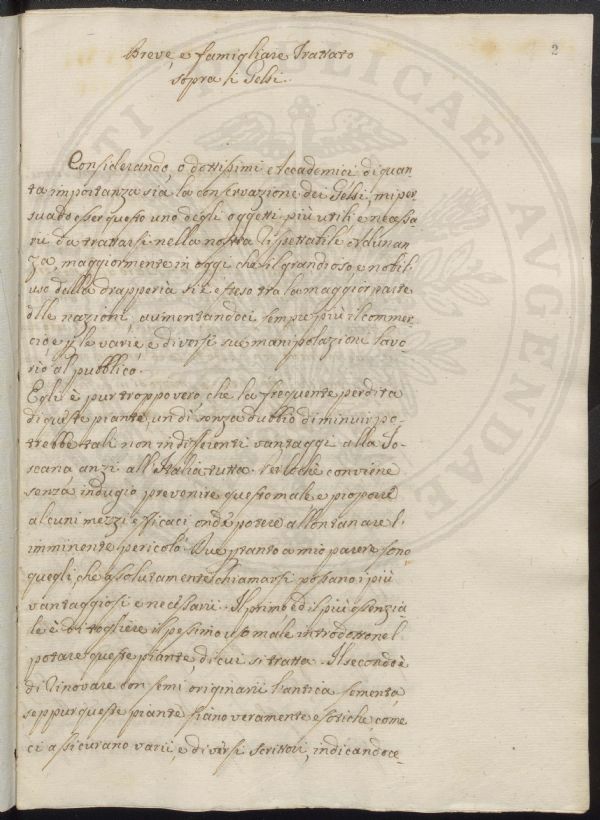 2
Breve, e famigliare Trattato
sopra li Gelsi.
Considerando, o dottissimi Accademici di quan-
ta importanza sia la conservazione dei Gelsi, mi per-
suado esser questo uno degli oggetti più utili, e necessa-
rii da trattarsi nella nostra rispettabile Adunan-
za, maggiormente in oggi che il grandioso, e nobil
uso della drapperia si è esteso tra la maggior parte
delle nazioni, aumentandoci sempre più il commer-
cio e per le varie, e diversi sue manipolazioni lavo-
rìo al pubblico.
Egli è pur troppo vero, che la frequente perdita
di queste piante, un dì senza dubbio diminuir po-
trebbe tali non indifferenti vantaggi alla To-
scana, anzi all'Italia tutta. Perloché conviene
senza indugio prevenire questo male, e proporre
alcuni mezzi efficaci onde potere allontanare l'
imminente pericolo. Due pertanto a mio parere sono
quegli, che assolutamente chiamarsi possano i più
vantaggiosi e necessarii. Il primo ed il più essenzia-
le è di togliere il pessimo uso male introdotto nel
potare queste piante, di cui si tratta. Il secondo è
di rinovare con semi originarii l'antica sementa,
seppur queste piante siano veramente esotiche, come
ci assicurano varii, e diversi scrittori, indicandoce-
PUBLICAE
AUGENDAE